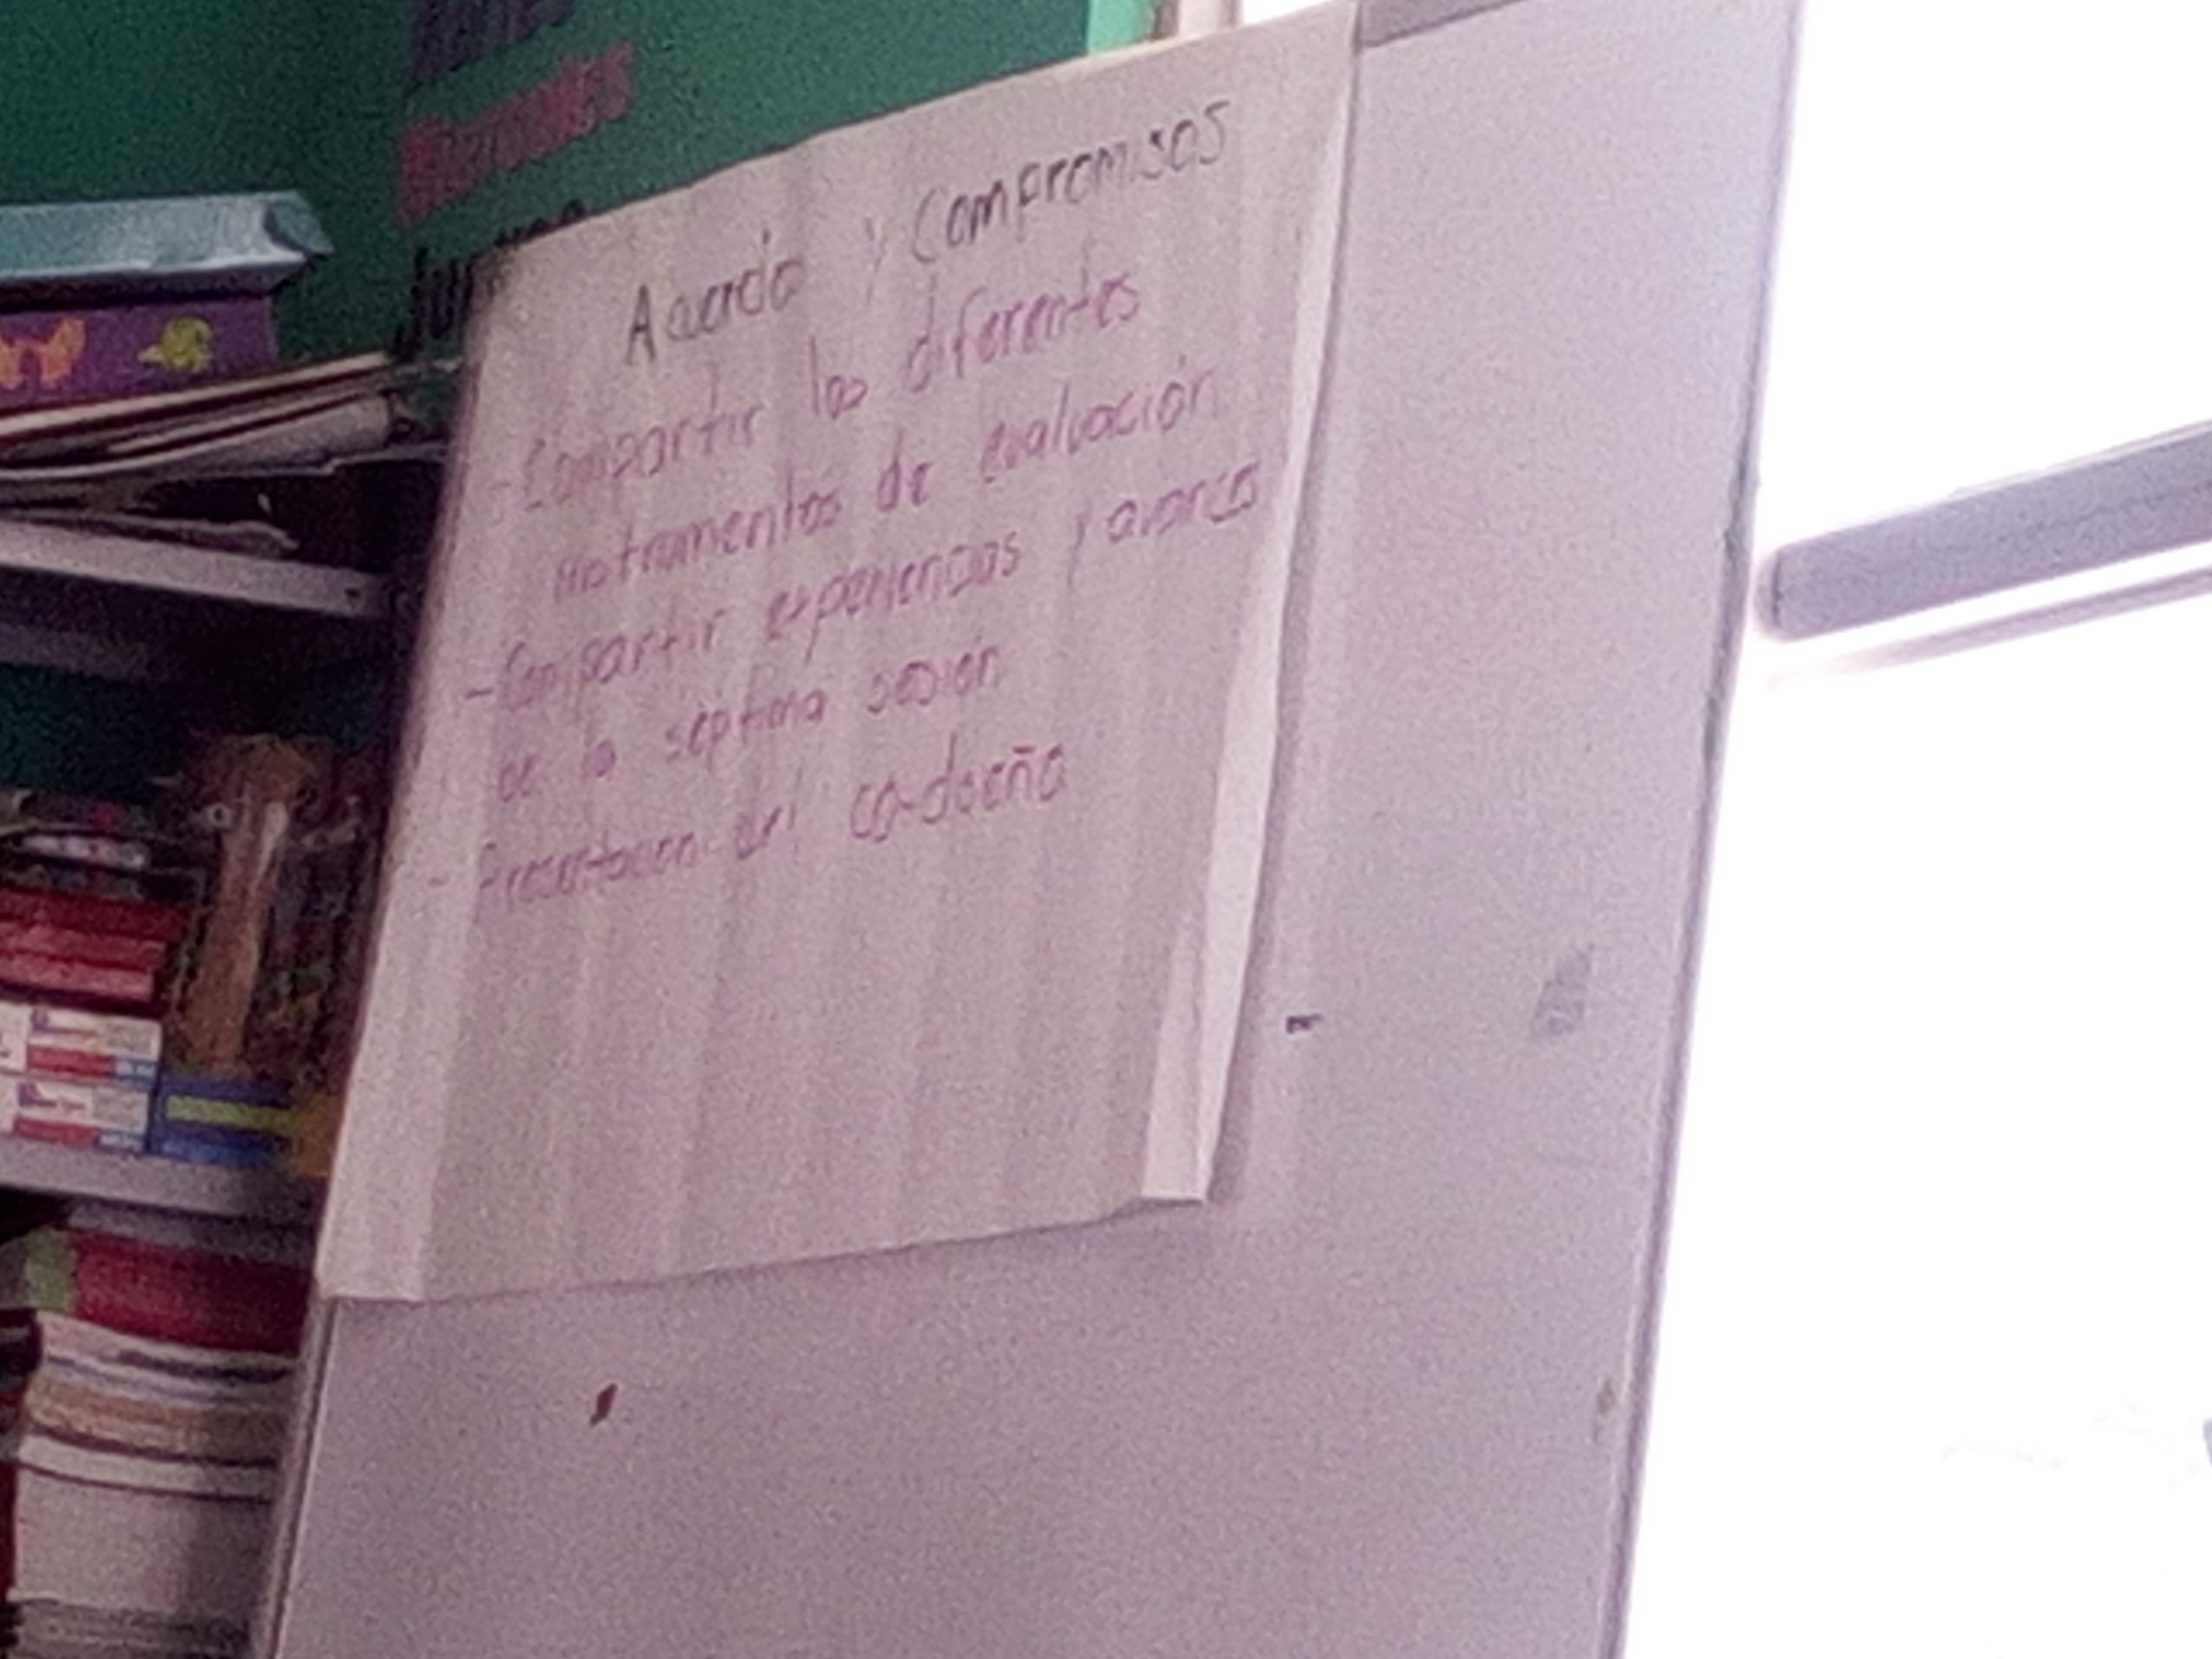 Acuerdo y Compromisos
- Compartir los diferentes
instrumentos de evaluación
- Compartir experiencias y avances
de la séptima sesión
- Presentación del co-diseño